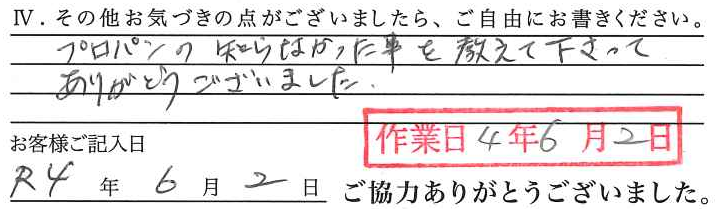 Ⅳ．その他お気づきの点がございましたら、ご自由にお書きください。
プロパンの知らなかった事を教えて下さって
ありがとうございました.
お客様ご記入日
作業日 4年6月2日
R4年6月2日 ご協力ありがとうございました。